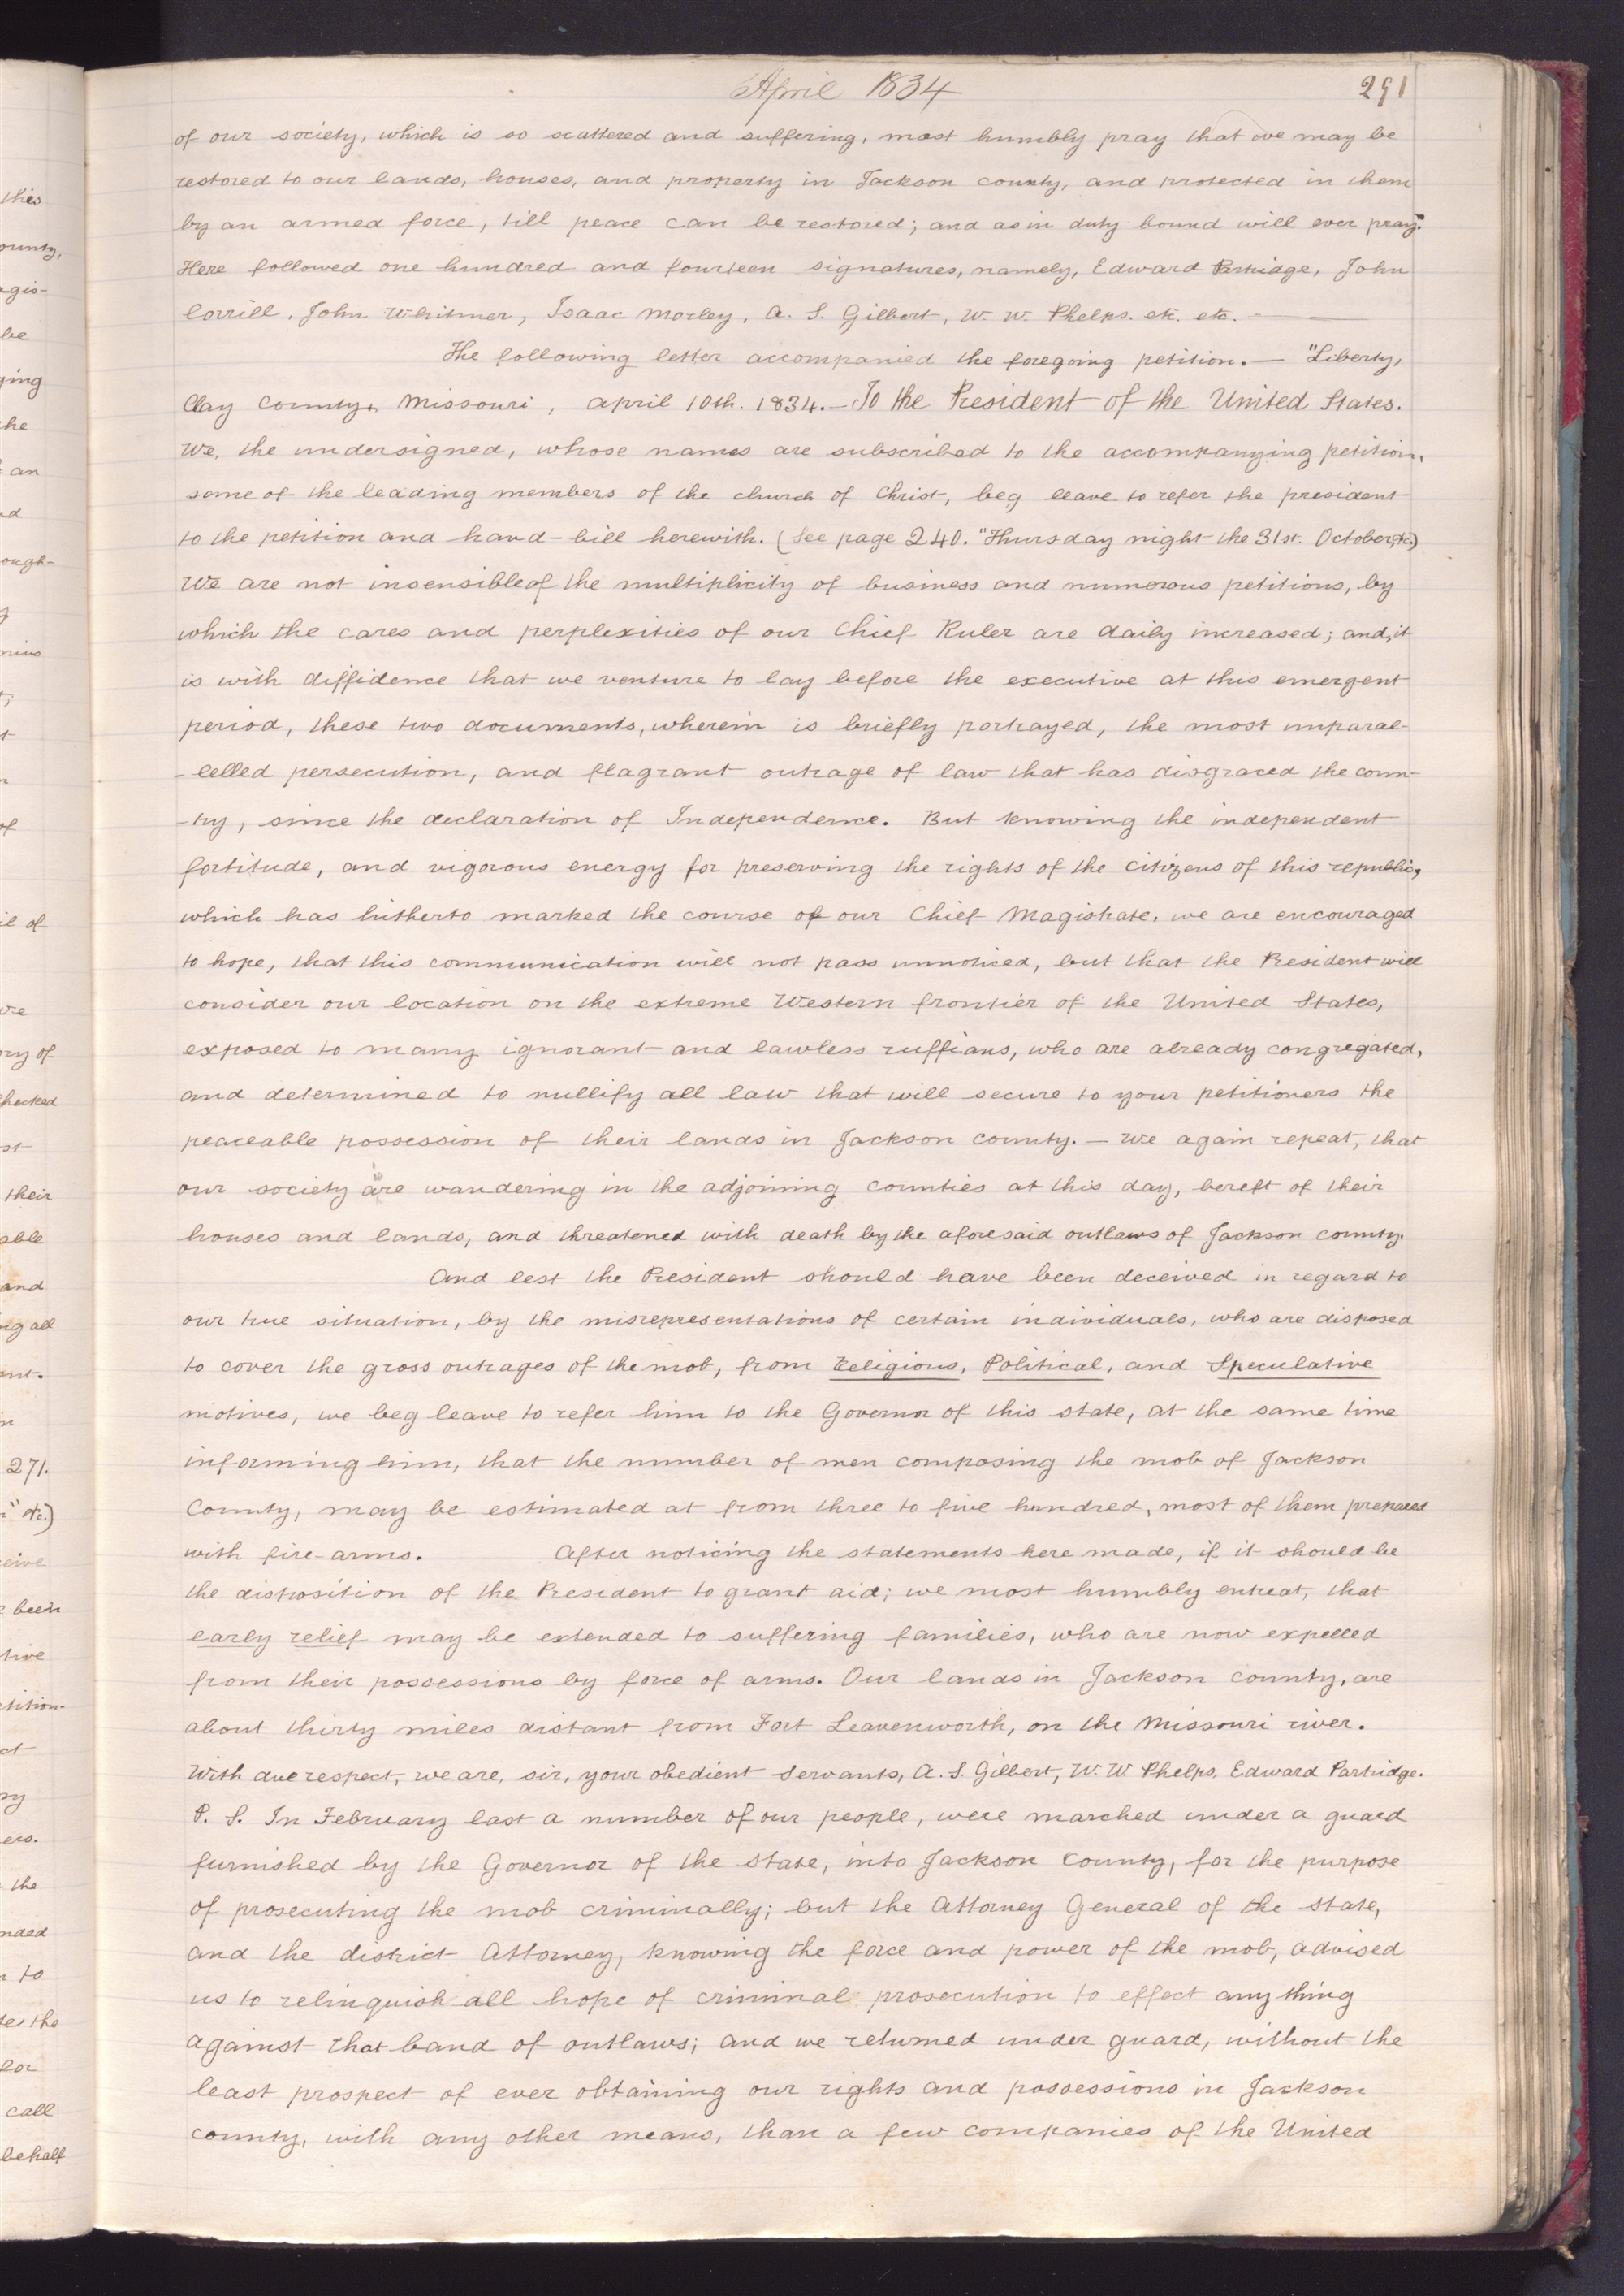 April 1834
291
of our society, which is so scattered and suffering, most humbly pray that we may be
restored to our lands, houses, and property in Jackson county, and protected in them
by an armed force, till peace can be restored; and as in duty bound will ever pray."
Here followed one hundred and fourteen signatures, namely, Edward Partridge, John
Corrill, John Whitmer, Isaac Morley, A. S. Gilbert, W. W. Phelps. etc. etc. — —
The following letter accompanied the foregoing petition. — "Liberty,
Clay County, Missouri, April 10th. 1834. — To the President of the United States.
We, the undersigned, whose names are subscribed to the accompanying petition,
some of the leading members of the church of Christ, beg leave to refer the president
to the petition and hand-bill herewith. (See page 240. "Thursday night the 31st. October, &c)
We are not insensible of the multiplicity of business and numerous petitions, by
which the cares and perplexities of our Chief Ruler are daily increased; and, it
is with diffidence that we venture to lay before the executive at this emergent
period, these two documents, wherein is briefly portrayed, the most unparal-
-lelled persecution, and flagrant outrage of law that has disgraced the coun-
-try, since the declaration of Independence. But knowing the independent
fortitude, and vigorous energy for preserving the rights of the citizens of this republic,
which has hitherto marked the course of our Chief Magistrate, we are encouraged
to hope, that this communication will not pass unnoticed, but that the President will
consider our location on the extreme Western frontier of the United States,
exposed to many ignorant and lawless ruffians, who are already congregated,
and determined to nullify all law that will secure to your petitioners the
peaceable possession of their lands in Jackson county. — We again repeat, that
our society are wandering in the adjoining counties at this day, bereft of their
houses and lands, and threatened with death by the aforesaid outlaws of Jackson county.
And lest the President should have been deceived in regard to
our true situation, by the misrepresentations of certain individuals, who are disposed
to cover the gross outrages of the mob, from Religious, Political, and Speculative
motives, we beg leave to refer him to the Governor of this state, at the same time
informing him, that the number of men composing the mob of Jackson
County, may be estimated at from three to five hundred, most of them prepared
with fire-arms. After noticing the statements here made, if it should be
the disposition of the President to grant aid; we most humbly entreat, that
early relief may be extended to suffering families, who are now expelled
from their possessions by force of arms. Our lands in Jackson county, are
about thirty miles distant from Fort Leavenworth, on the Missouri river.
With due respect, we are, sir, your obedient servants, A. S. Gilbert, W. W. Phelps, Edward Partridge.
P. S. In February last a number of our people, were marched under a guard
furnished by the Governor of the State, into Jackson County, for the purpose
of prosecuting the mob criminally; but the Attorney General of the state,
and the district Attorney, knowing the force and power of the mob, advised
us to relinquish all hope of criminal prosecution to effect any thing
against that band of outlaws; and we returned under guard, without the
least prospect of ever obtaining our rights and possessions in Jackson
county, with any other means, than a few companies of the United